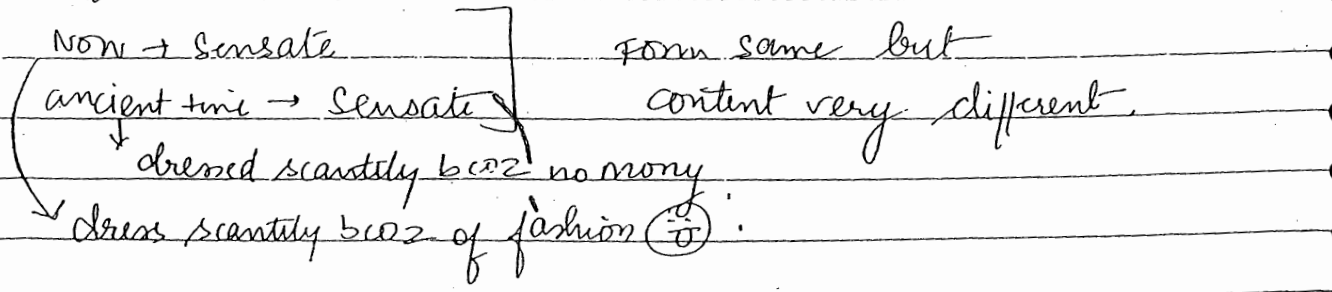 Now → Sensate Form same but
ancient time → Sensate content very different.
dressed scantily bcoz no mony
dress scantily bcoz of fashion